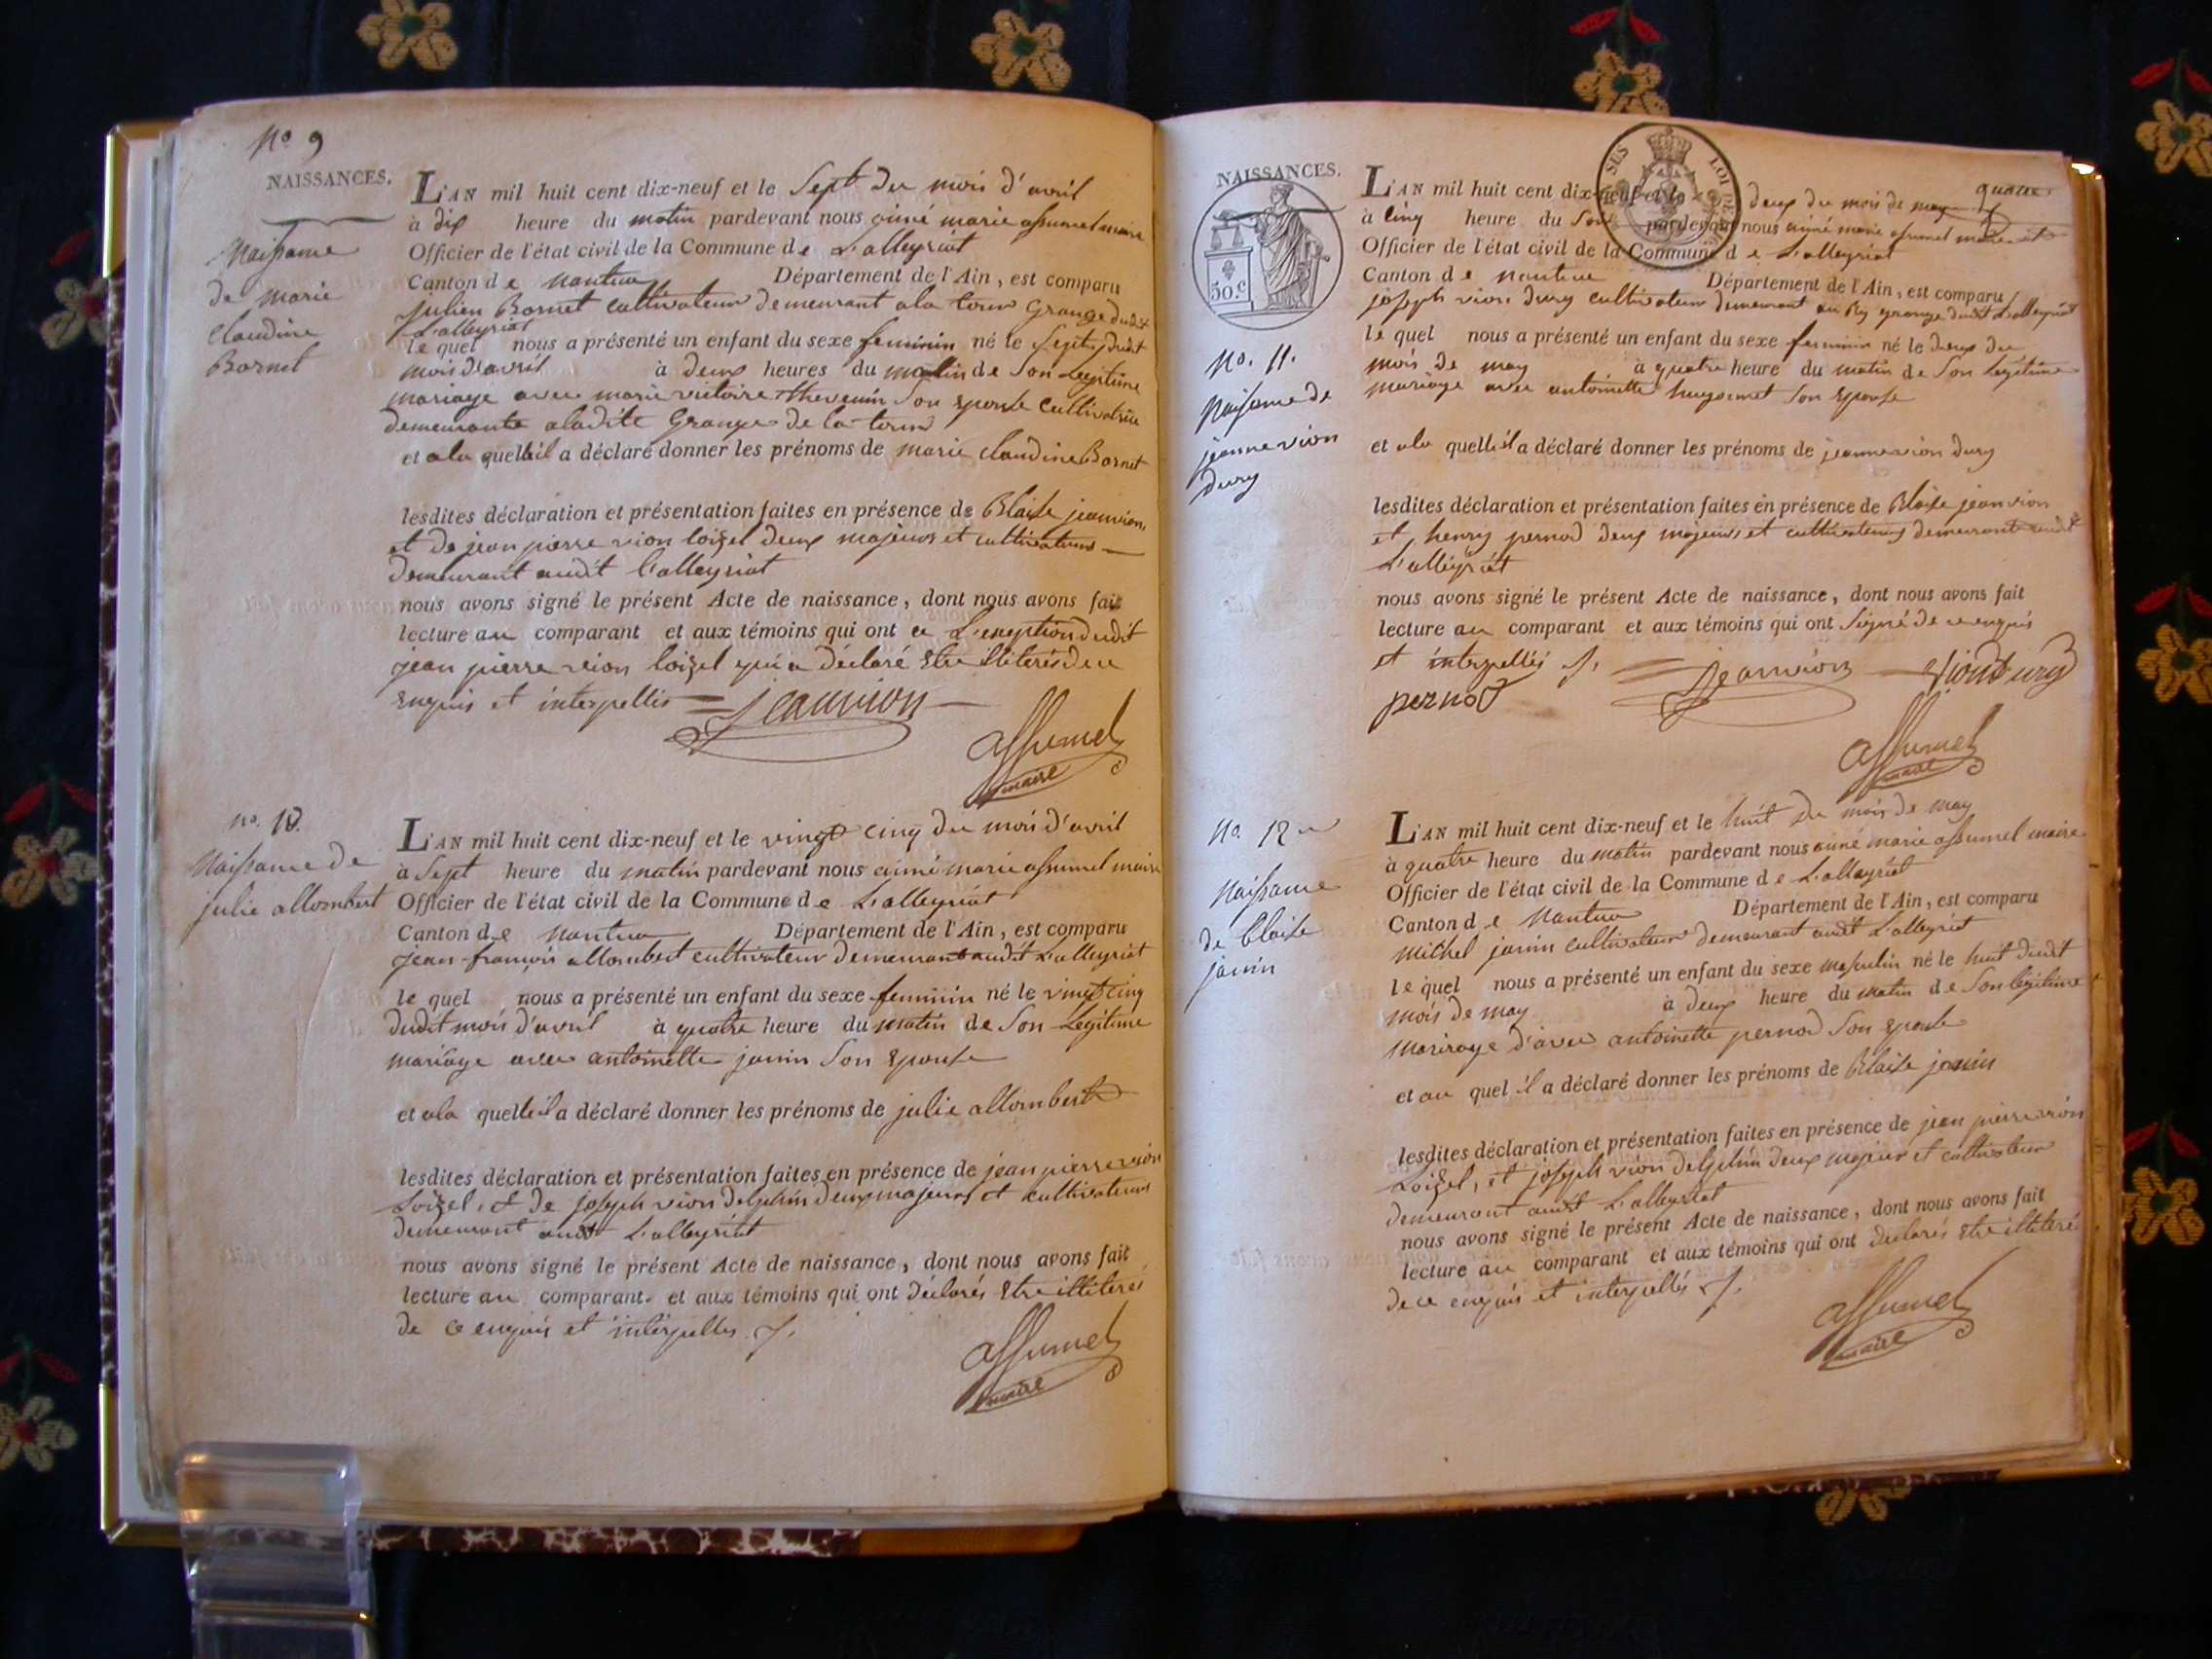 No 9
NAISSANCES.
Naissance
de marie
claudine
Bornet
L'AN mil huit cent dix-neuf et le Sept du mois d'avril
à dix heure du matin pardevant nous aimé marie assumel maire
Officier de l'état civil de la Commune de L'alleyriat
Canton de nantua Département de l'Ain, est comparu
julien Bornet cultivateur demeurant a la Grange dudit
L'alleyriat
le quel nous a présenté un enfant du sexe feminin né le Sept dudit
mois d'avril à deux heures du matin de Son Legitime
mariage avec marie victoire thevenin Son epouse cultivatrice
demeurante a ladite Grange de la
et a la quelle il a déclaré donner les prénoms de marie claudine Bornet
lesdites déclaration et présentation faites en présence de Blaise jeanvion,
et de jean pierre vion loizel deux majeurs et cultivateurs
demeurant audit L'alleyriat
nous avons signé le présent Acte de naissance, dont nous avons fait
lecture au comparant et aux témoins qui ont a L'exeption dudit
jean pierre vion loizel qui a déclaré Etre illiteré de ce
enquis et interpellés
jeanvion
assumel
maire
no. 10.
Naissance de
julie allombert
L'AN mil huit cent dix-neuf et le vingt cinq du mois d'avril
à Sept heure du matin pardevant nous aimé marie assumel maire
Officier de l'état civil de la Commune de L'alleyriat
Canton de nantua Département de l'Ain, est comparu
jean-françois allombert cultivateur demeurant audit L'alleyriat
le quel nous a présenté un enfant du sexe feminin né le vingt cinq
dudit mois d'avril à quatre heure du matin de Son Legitime
mariage avec antoinette janin Son epouse
et a la quelle il a déclaré donner les prénoms de julie allombert
lesdites déclaration et présentation faites en présence de jean pierre vion
Loizel, et de joseph vion delphin deux majeurs et cultivateurs
demeurant audit L'alleyriat
nous avons signé le présent Acte de naissance, dont nous avons fait
lecture au comparant et aux témoins qui ont déclarés Etre illiterés
de ce enquis et interpellés
assumel
maire
NAISSANCES.
50.c
No. 11.
Naissance de
jeanne vion
dury
L'AN mil huit cent dix-neuf et le deux du mois de may
à cinq heure du Soir pardevant nous aimé marie assumel maire
Officier de l'état civil de la Commune de L'alleyriat
Canton de nantua Département de l'Ain, est comparu
joseph vion dury cultivateur demeurant au grange dudit L'alleyriat
le quel nous a présenté un enfant du sexe feminin né le deux du
mois de may à quatre heure du matin de Son Legitime
mariage avec antoinette hugonnet Son Epouse
et a la quelle il a déclaré donner les prénoms de jeanne vion dury
lesdites déclaration et présentation faites en présence de Blaise jeanvion
et henry pernod deux majeurs et cultivateurs demeurant audit
L'alleyriat
nous avons signé le présent Acte de naissance, dont nous avons fait
lecture au comparant et aux témoins qui ont Signé de ce enquis
et interpellés
jeanvion
viondury
pernod
assumel
maire
No. 12
Naissance
de blaise
janin
L'AN mil huit cent dix-neuf et le huit du mois de may
à quatre heure du matin pardevant nous aimé marie assumel maire
Officier de l'état civil de la Commune de L'alleyriat
Canton de Nantua Département de l'Ain, est comparu
michel janin cultivateur demeurant audit L'alleyriat
le quel nous a présenté un enfant du sexe masculin né le huit dudit
mois de may à deux heure du matin de Son legitime
marirage d'avec antoinette pernod Son epouse
et au quel il a déclaré donner les prénoms de Blaise janin
lesdites déclaration et présentation faites en présence de jean pierre vion
Loizel, et joseph vion delphin deux majeur et cultivateur
demeurant audit L'alleyriat
nous avons signé le présent Acte de naissance, dont nous avons fait
lecture au comparant et aux témoins qui ont declarés Etre illiteré
de ce enquis et interpellés
assumel
maire